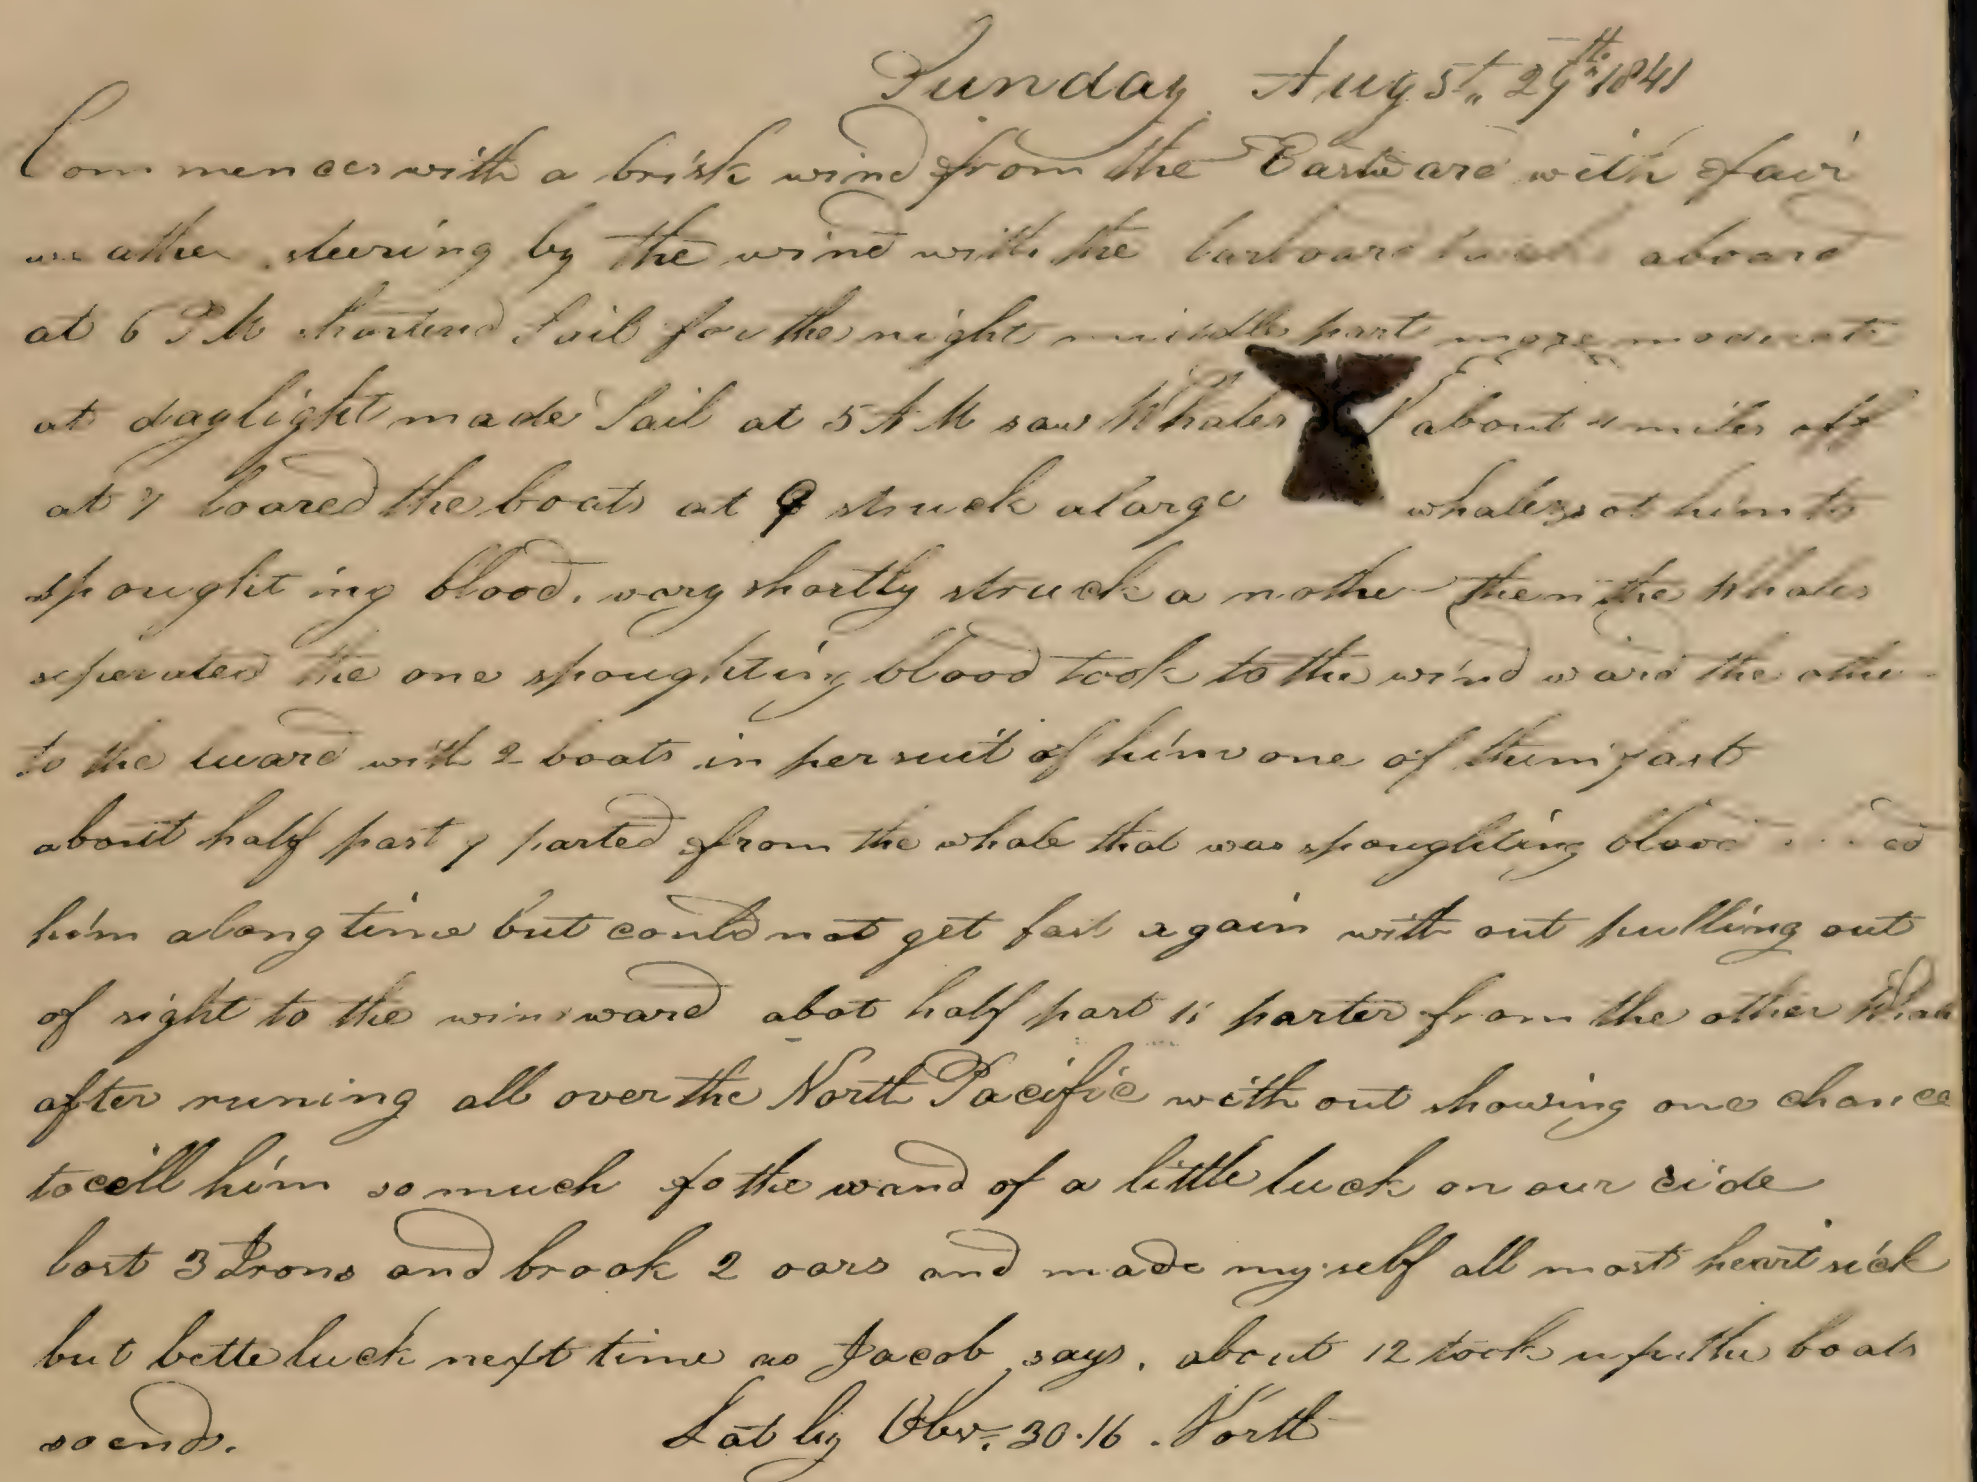 Sunday Augst,, 29th 1841
Commences with a brisk wind from the Eastward with fair
weather steering by the wind with the larboard tacks aboard
at 6 PM shortend Sail for the night middle part more moderate
at daylight made Sail at 5 AM saw Whales about 4 miles off
at 7 loared the boats at 9 struck a large whale got him to
spoughting blood, vary shortly struck a nother then the Whales
seperated the one spoughting blood took to the wind ward the other
to the luard with 2 boats in persuit of him one of them fast
about half past 9 parted from the whale that was spoughting blood
him a long time but could not get fast again with out pulling out
of sight to the windward abot half past 11 parter from the other Whale
after runing all over the North Pacific with out showing one chance
to cill him so much fo the wand of a little luck on our side
lost 3 Irons and brook 2 oars and made my self all most heart sick
but bette luck next time as Jacob says. about 12 took up the boats
so ends. Lat by Obs. 30.16. North